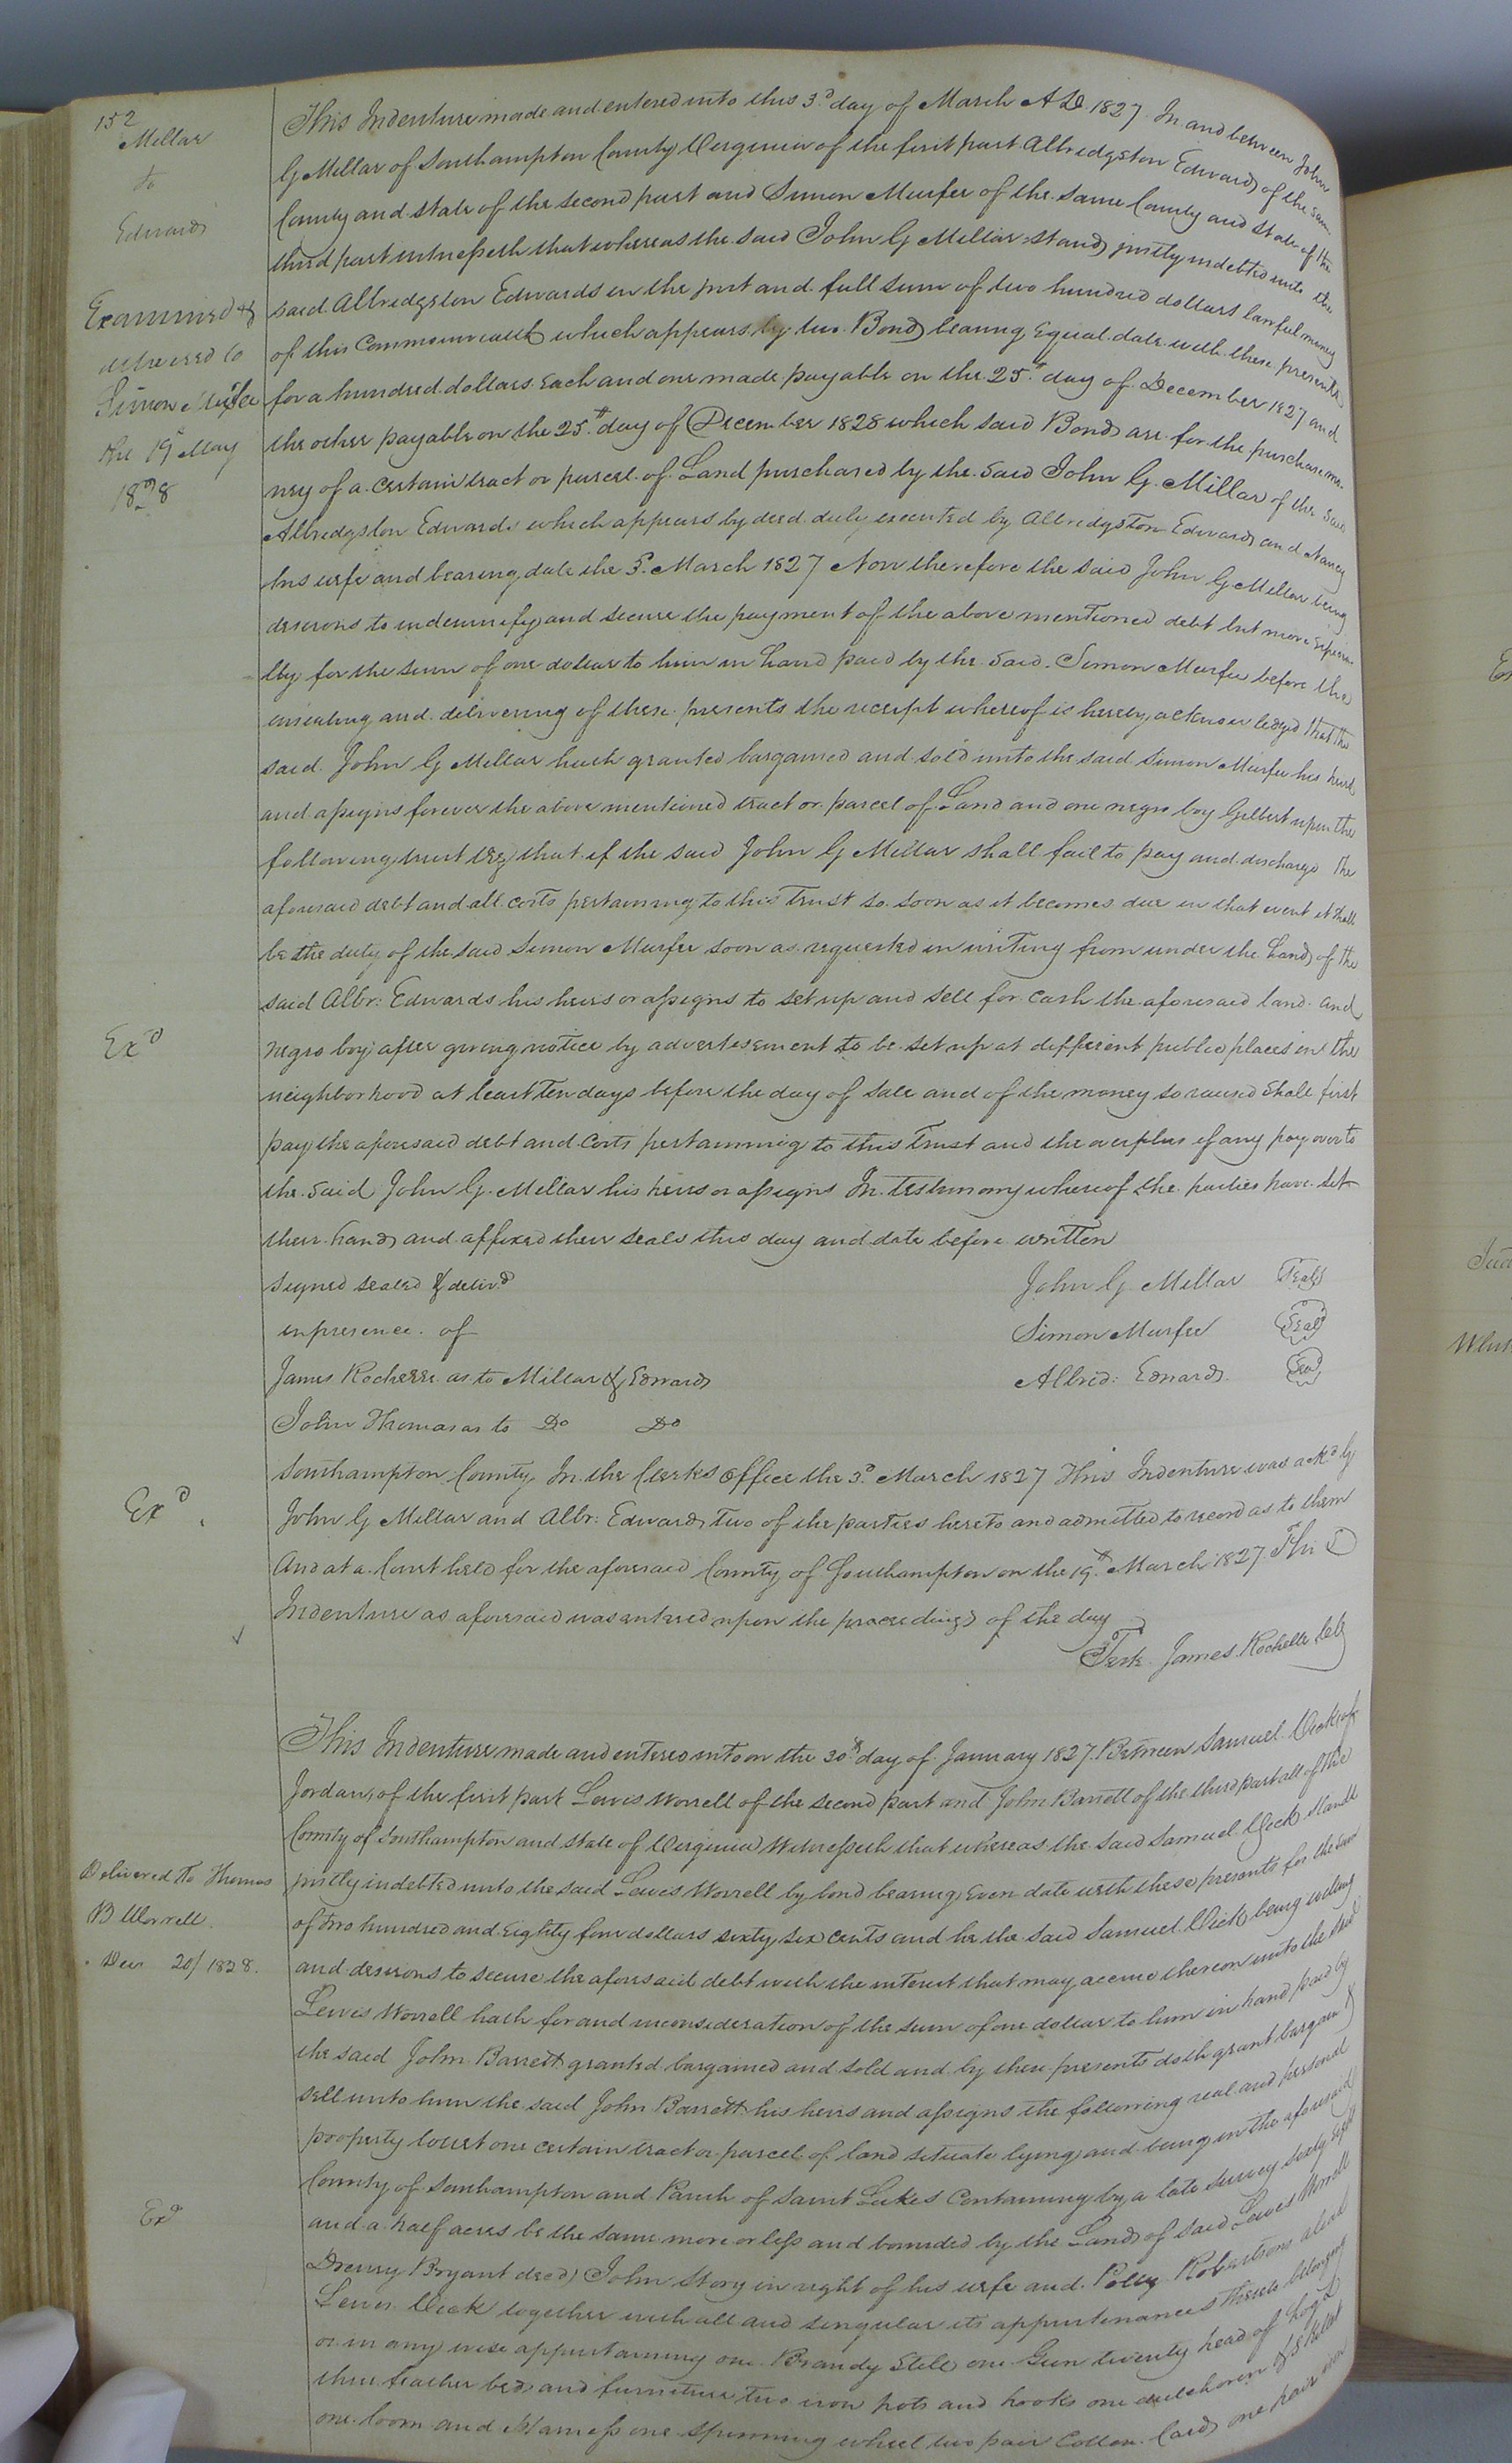 152
Millar
to
Edwards
This Indenture made and entered into this 3d day of March AD 1827. In and between John
G Millar of Southampton County Virginia of the first part Albridgston Edwards of the same
County and State of the second part and Simon Murfee of the same County and State of the
third part witnesseth that whereas the said John G Millar stands justly indebted unto the
said Albridgston Edwards in the just and full sum of two hundred dollars lawful money
of this Commonwealth which appears by two Bonds bearing Equal date with these presents
for a hundred dollars Each and one made payable on the 25th day of December 1827 and
the other payable on the 25th day of December 1828 which said Bonds are for the purchase mo-
ney of a certain tract or parcel of Land purchased by the said John G. Millar of the said
Albridgston Edwards which appears by deed duly executed by Albridgston Edwards and Nancy
his wife and bearing date the 3d March 1827 Now therefore the said John G Millar being
desirous to indemnify and secure the payment of the above mentioned debt but more especia-
lly for the sum of one dollar to him in hand paid by the said Simon Murfee before the
ensealing and delivering of these presents the receipt whereof is hereby acknowledged that the
said John G Millar hath granted bargained and sold unto the said Simon Murfee his heirs
and assigns forever the above mentioned tract or parcel of Land and one negro boy Gilbert upon the
following trust (viz) that if the said John G Millar shall fail to pay and discharge the
aforesaid debt and all costs pertaining to this Trust so soon as it becomes due in that event it shall
be the duty of the said Simon Murfee soon as requested in writing from under the hands of the
said Albr: Edwards his heirs or assigns to set up and sell for cash the aforesaid land and
negro boy after giving notice by advertisement to be set up at different public places in the
neighborhood at least Ten days before the day of sale and of the money so raised shall first
pay the aforesaid debt and costs pertaining to this Trust and the overplus if any pay over to
the said John G. Millar his heirs or assigns In testimony whereof the parties have set
their hands and affixed their seals this day and date before written
Signed sealed & delivd
in presence of
James Rochelle as to Millar & Edwards
John Thomas as to Do Do
John G Millar Seal
Simon Murfee Seal
Albrid: Edwards Seal
Southampton County In the Clerks Office the 3d March 1827 This Indenture was ackd by
John G Millar and Albr: Edwards two of the parties hereto and admitted to record as to them
And at a Court held for the aforesaid County of Southampton on the 19th March 1827 This
Indenture as aforesaid was entered upon the proceedings of the day
Teste James Rochelle Clk
Examined &
delivered to
Simon Murfee
the 19th May
1828
Exd
Exd
This Indenture made and entered into on the 30th day of January 1827. Between Samuel Vick of
Jordan, of the first part Lewis Worrell of the second part and John Barrett of the third part all of the
County of Southampton and State of Virginia Witnesseth that whereas the said Samuel Vick stands
justly indebted unto the said Lewis Worrell by bond bearing Even date with these presents for the sum
of Two hundred and Eighty four dollars sixty six cents and he the said Samuel Vick being willing
and desirous to secure the aforesaid debt with the interest that may accrue thereon unto the said
Lewis Worrell hath for and in consideration of the sum of one dollar to him in hand paid by
the said John Barrett granted bargained and sold and by these presents doth grant bargain &
sell unto him the said John Barrett his heirs and assigns the following real and personal
property to wit one certain tract or parcel of land situate lying and being in the aforesaid
County of Southampton and Parish of Saint Lukes Containing by a late survey sixty
and a half acres be the same more or less and bounded by the Lands of said Lewis Worrell
Drewry Bryant decd, John Story in right of his wife and Polly Robertsons also
Lewis Vick together with all and singular its appurtenances thereto belonging
or in any wise appertaining one Brandy Still one Gun twenty head of hogs
three feather beds and furniture two iron pots and hooks one & Skillet
one loom and Harness one spinning wheel two pair Cotton Cards one pair
Delivered to Thomas
B Worrell.
Dec 20/1828.
Exd